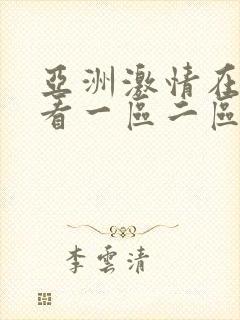 亞洲激情在
看一區二區
李雲清